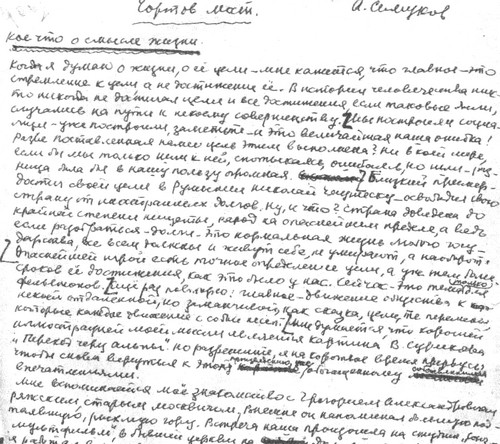 Чортов мост. А. Селуков
Кое что о смысле жизни.
Когда я думаю о жизни, о её цели – мне кажется, что главное – это
стремление к цели а не достижения её. В истории человечества ник-
то никогда не достигал цели и все достижения если таковые были,
случались на пути к некоему совершенству. Мы построили социа-
лизм – уже построили, заметьте – и это величайшая наша ошибка!
Разве поставленная нами цель этим выполнена? ни в коей мере,
если бы мы только шли к ней, спотыкаясь, ошибаясь, но шли – раз-
ница была бы в нашу пользу огромная. Близкий пример –
достиг своей цели в Румынии Николай Чаушеску – освободил свою
страну от иностранных долгов. Ну, и что? Страна доведена до
крайней степени нищеты, народ на опасней чем прежде, а ведь
если разобраться – долги – это нормальная жизнь любого госу-
дарства, все всем должны и живут себе, не умирают, а наоборот.
Опаснейшей игрой есть точное определение цели, а уж тем более
сроков её достижения, как это было у нас. Сейчас это только тема для
фельетонов. Ещё раз повторю: главное – движение общества к
некоей отдаленной, но заманчивой, как сказка, цели, те перемены
которые каждое движение с собой несёт. Мне думается что хорошей
иллюстрацией моей мысли является картина В. Сурикова
"Переход через альпы" но разрешите, я на короткое время прервусь
чтобы снова вернуться к этому
впечатлениями.
Мне вспоминается моё знакомство с Григорием Алексан
ряжским, старым москвичом, внешне он напоминал большую под-
таявшую, рыхлую гору. Встреча наша произошла на студии "Союз-
мультфильм", в бывшей церкви на